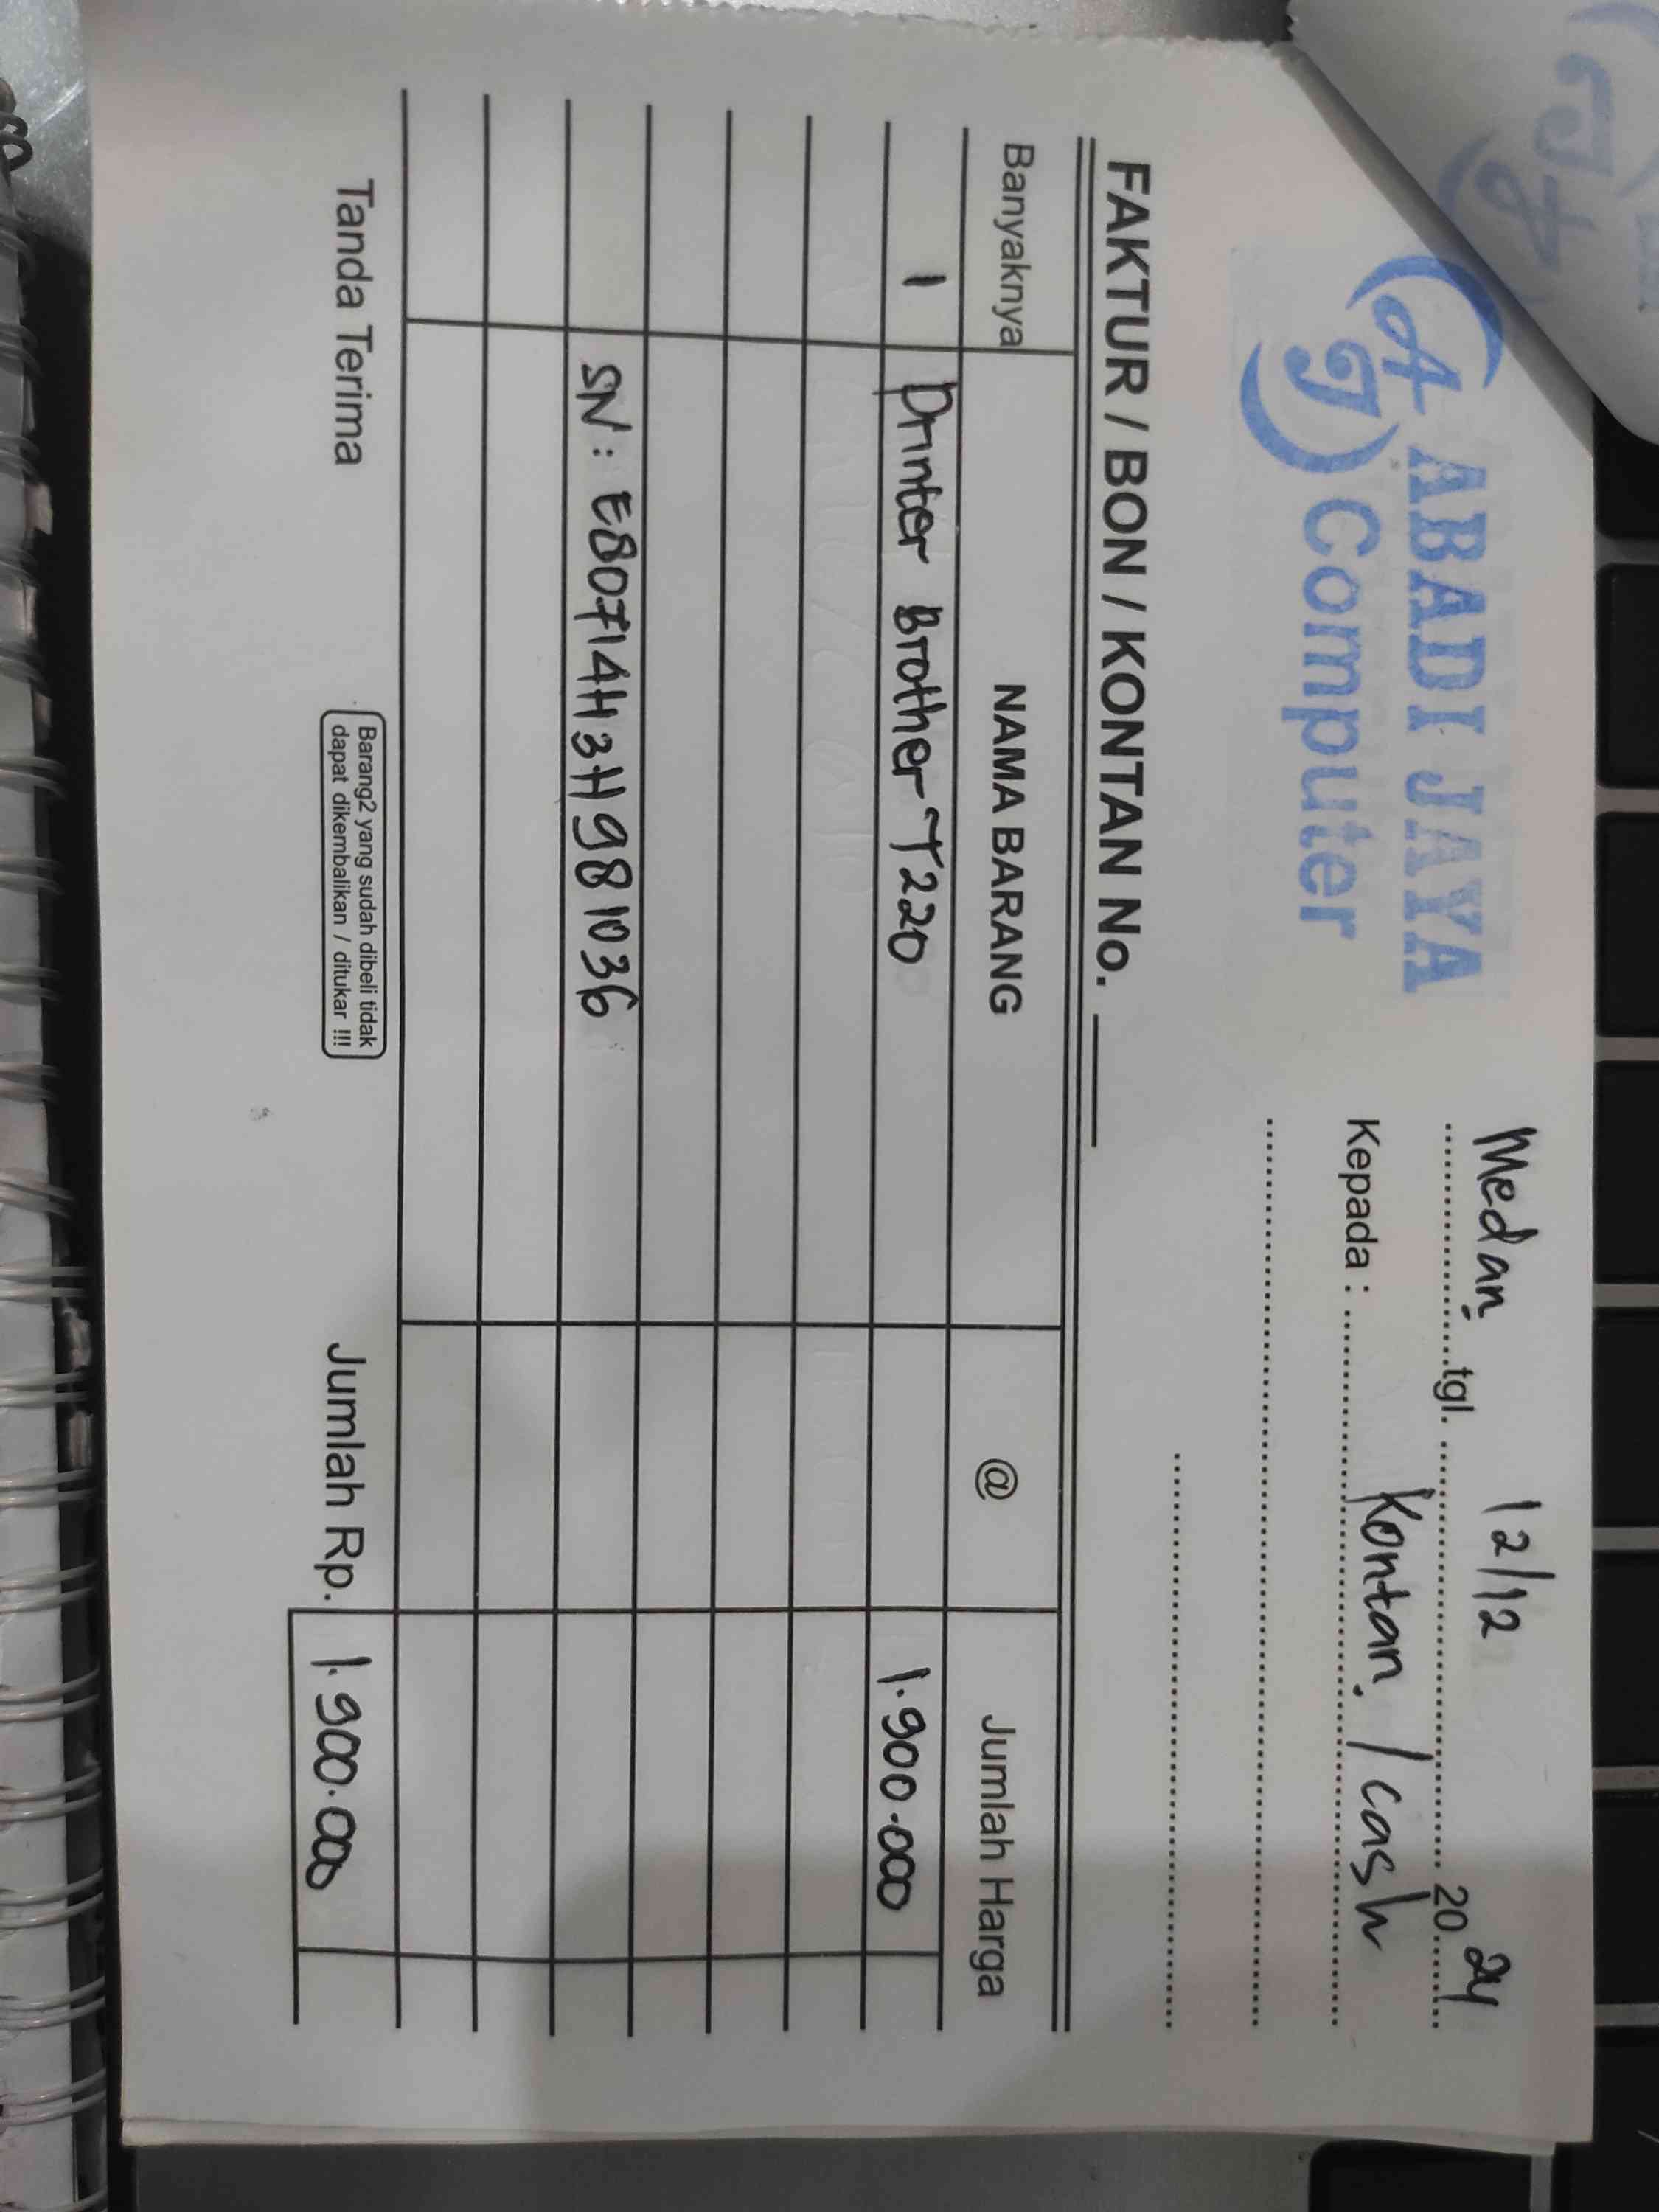 AJ ABADI JAYA
Computer
Medan tgl. 12/12 2024
Kepada : Kontan / cash
FAKTUR / BON / KONTAN No.
Banyaknya NAMA BARANG @ Jumlah Harga
1 Printer Brother T220 1.900.000
SN : E80714H3H981036
Tanda Terima
Barang2 yang sudah dibeli tidak
dapat dikembalikan / ditukar !!!
Jumlah Rp. 1.900.000